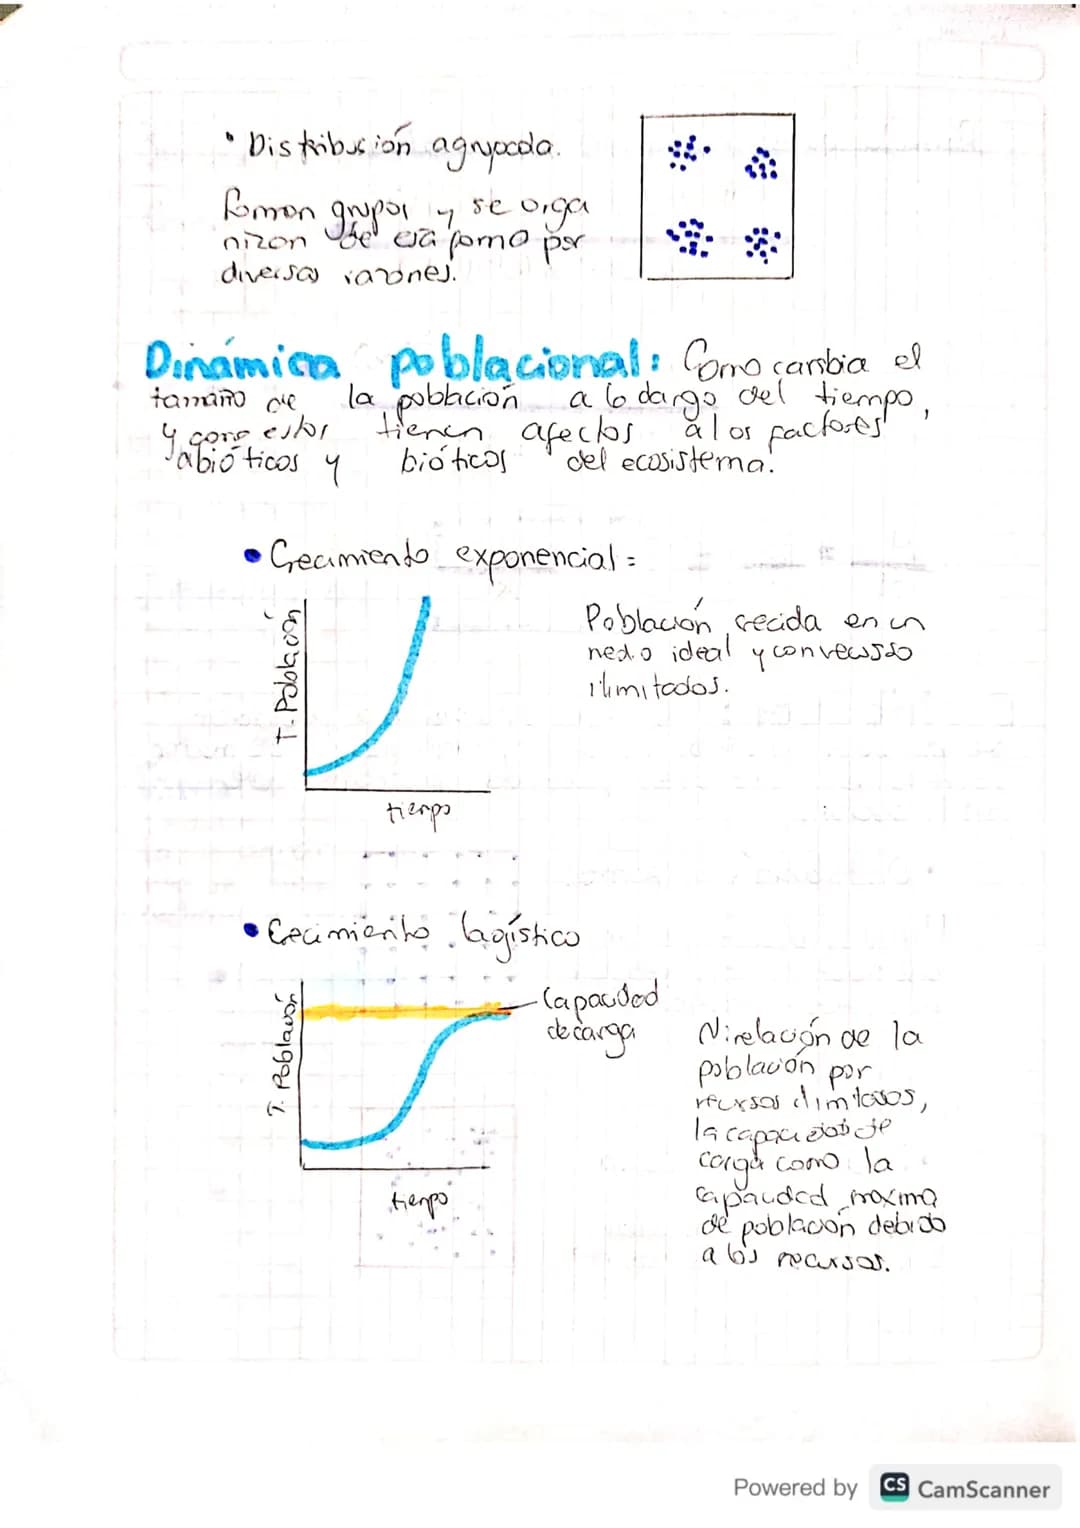 • Distribución agrupada.
Forman grupos y se orga
nizan de esta forma por
diversas razones.
Dinámica poblacional: Como cambia el
tamaño de la población a lo largo del tiempo,
y como estos tienen afectos a los factores
abióticos y bióticos del ecosistema.
• Crecimiento exponencial =
T. Población
Población crecida en un
medio ideal y con recurso
ilimitados.
tiempo
• Crecimiento logístico
T. Población
Capacidad
de carga
Nivelación de la
población por
recursos limitados,
la capacidad de
carga como la
capacidad maxima
de población debido
a los recursos.
tiempo
Powered by CS CamScanner